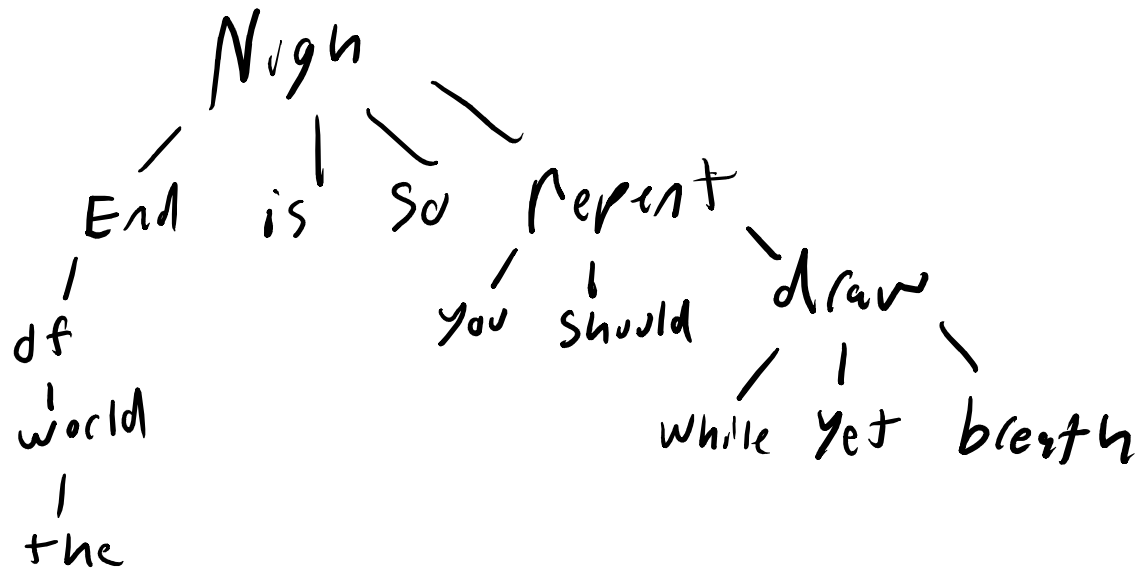 Nigh
End is so repent
you should draw
of
world while yet breath
the